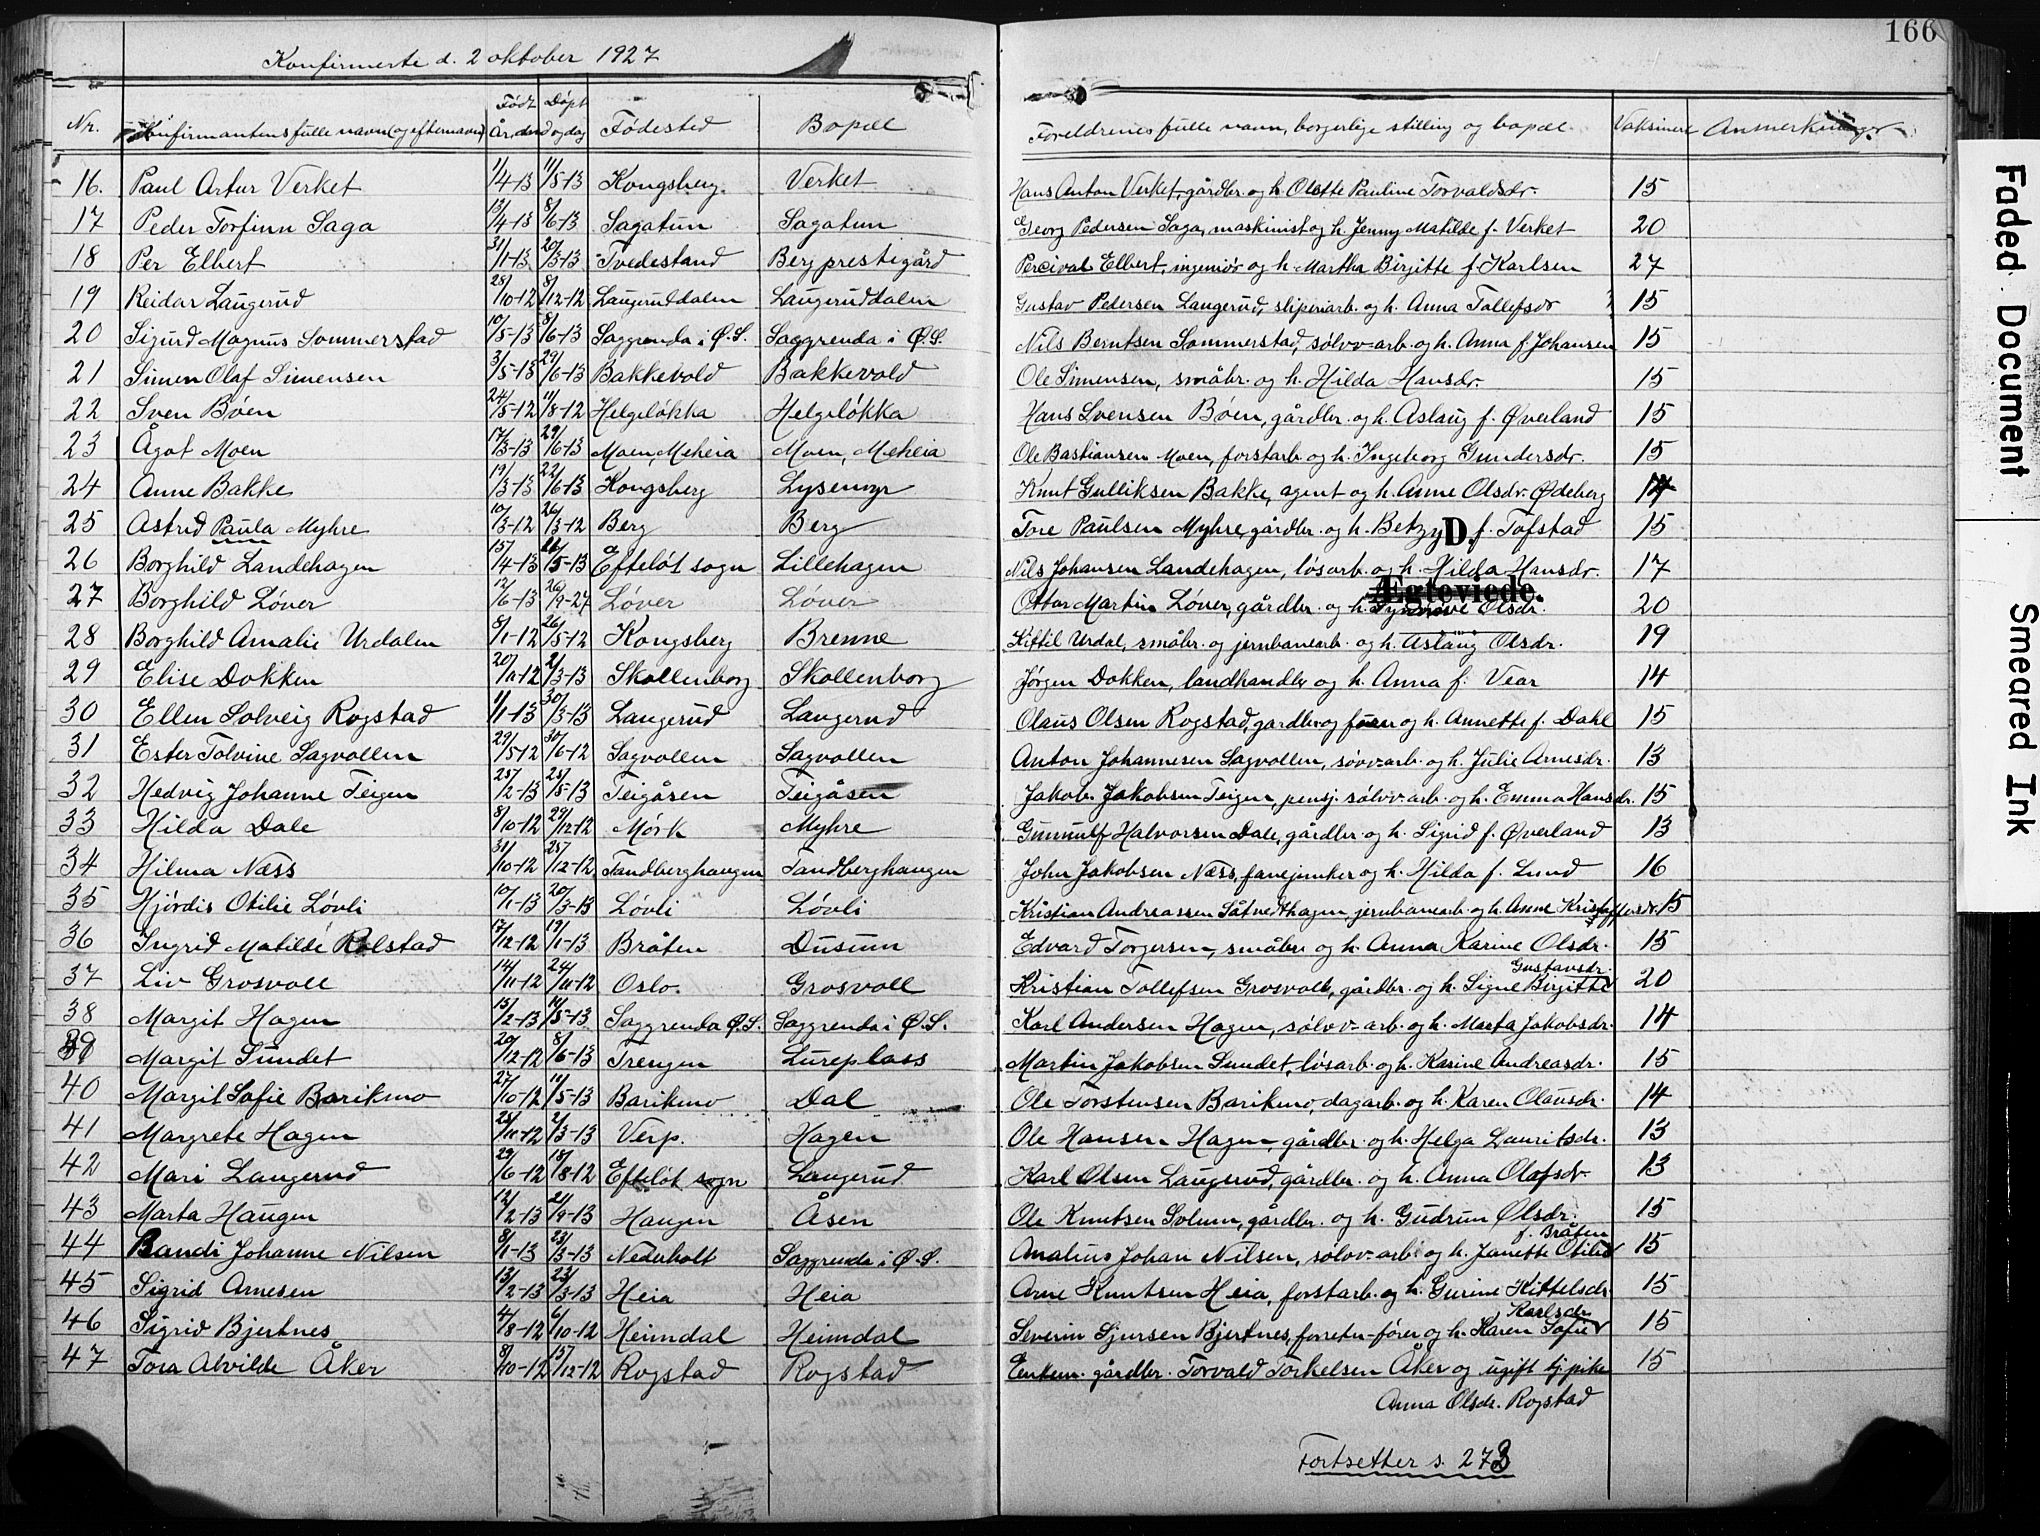 166
Konfirmerte d. 2 oktober 1927
Nr. Konfirmantens fulle navn (og efternavn) Født År, dend Døpt og dag Fødested Bopæl Foreldrenes fulle navn, borgerlige stilling og bopæl. Vaksinert Anmerkninger
16. Paul Artur Verket 1/4-13 11/5-13 Kongsberg. Verket Hans Anton Verket, gårdbr. og h. Olette Pauline Torvaldsdr. 15
17 Peder Torfinn Saga 13/4-13 8/6-13 Sagatun Sagatun Georg Pedersen Saga, maskinist og h. Jenny Matilde f. Verket 20
18 Per Elbert 31/1-13 20/3-13 Tvedestand Berg prestigård Percival Elbert, ingeniør og h. Martha Birgitte f. Karlsen 27
19 Reidar Laugerud 28/10-12 8/12-12 Laugeruddalen Laugeruddalen Gustav Pedersen Laugerud, sliperiarb. og h. Anna Tollefsdr 15
20 Sigurd Magnus Sommerstad 10/5-13 8/6-13 Saggrenda i Ø.S. Saggrenda i Ø.S. Nils Berntsen Sommerstad, sølvv-arb. og h. Anna f. Johansen 15
21 Simen Olaf Simensen 3/5-13 29/6-13 Bakkevold Bakkevold Ole Simensen, småbr. og h. Hilda Hansdr. 15
22 Sven Bøen 24/5-12 11/8-12 Helgeløkka Helgeløkka Hans Svensen Bøen, gårdbr. og h. Aslaug f. Øverland 15
23 Ågot Moen 17/3-13 29/6-13 Moen, Meheia Moen, Meheia Ole Bastiansen Moen, forstarb. og h. Ingeborg Gundersdr. 15
24 Anne Bakke 19/3-13 22/6-13 Kongsberg Lysemyr Knut Gulliksen Bakke, agent og h. Anne Olsdr. Ødeberg 14
25 Astrid Paula Myhre 10/3-12 26/3-12 Berg Berg Tore Paulsen Myhre, gårdbr. og h. Betzy D. f. Tofstad 15
26 Borghild Landehagen 15/4-13 /5-13 Efteløt sogn Lillehagen Nils Johansen Landehagen, løsarb. og h. Hilda Hansdr. 17
Ægteviede.
27 Borghild Løver 12/6-13 26/9-27 Løver Løver Ottar Martin Løver, gårdbr. og h. Synnøve Olsdr. 20
28 Borghild Amalie Urdalen 8/1-12 26/5-12 Kongsberg Brenne Kittil Urdal, småbr. og jernbanearb. og h. Aslaug Olsdr. 19
29 Elise Dokken 20/11-12 2/3-13 Skollenborg Skollenborg Jørgen Dokken, landhandler og h. Anna f. Vear 14
30 Ellen Solveig Rogstad 1/1-13 30/3-13 Laugerud Laugerud Olaus Olsen Rogstad, gardbr. og og h. Annette f. Dahl 15
31 Ester Tolvine Sagvollen 29/5-12 30/6-12 Sagvollen Sagvollen Anton Johannesen Sagvollen, søvv-arb. og h. Julie Arnesdr. 13
32 Hedvig Johanne Teigen 25/2-13 25/5-13 Teigåsen Teigåsen Jakob Jakobsen Teigen, pensj. sølvv. arb. og h. Emma Hansdr. 15
33 Hilda Dale 8/10-12 29/12-12 Mørk Myhre Gunnulf Halvorsen Dale, gårdbr. og h. Sigrid f. Øverland 13
34 Hilma Næss 31/10-12 25/12-12 Tandberghaugen Tandberghaugen John Jakobsen Næss, fanejunker og h. Hilda f. Lund 16
35 Hjørdis Otilie Løvli 10/1-13 20/3-13 Løvli Løvli Kristian Andreassen Såtvedthagen, jernbanearb. og h. Anne Kristoffersdr. 15
36 Ingrid Matilde Rolstad 17/12-12 19/1-13 Bråten Dusum Edvard Torgersen, småbr. og h. Anna Karine Olsdr. 15
37 Liv Grosvoll 14/11-12 24/11-12 Oslo. Grosvoll Kristian Tollefsen Grosvoll, gårdbr. og h. Signe Birgitte Gustavsdr. 20
38 Margit Hagen 15/2-13 11/5-13 Saggrenda Ø.S. Saggrenda i Ø.S. Karl Andersen Hagen, sølvv-arb. og h. Marta Jakobsdr. 14
39 Margit Sundet 20/12-12 8/6-13 Trengen Lureplass Martin Jakobsen Sundet, løsarb. og h. Karine Andreasdr. 15
40 Margit Sofie Barikmo 27/10-12 11/5-13 Barikmo Dal Ole Torstensen Barikmo, dagarb. og h. Karen Olausdr. 14
41 Margrete Hagen 25/11-12 2/3-13 Verp. Hagen Ole Hansen Hagen, gårdbr. og h. Helga Lauritsdr. 13
42 Mari Laugerud 29/6-12 18/8-12 Efteløt sogn Laugerud Karl Olsen Laugerud, gårdbr. og h. Anna Olafsdr. 13
43 Marta Haugen 12/2-13 21/9-13 Haugen Åsen Ole Knutsen Solum, gårdbr. og h. Gudrun Olsdr. 15
44 Randi Johanne Nilsen 8/1-13 23/3-13 Nederholt Saggrenda i Ø.S. Analius Johan Nilsen, sølvv-arb. og h. Janette Otilie f. Bråten 15
45 Sigrid Arnesen 13/2-13 23/3-13 Heia Heia Arne Knutsen Heia, forstarb. og h. Gurine Kittelsdr. 15
46 Sigrid Bjertnes 4/8-12 6/10-12 Heimdal Heimdal Severin Sjursen Bjertnes, forretn-fører og h. Karen Sofie Karlsdr. 15
47 Tora Alvilde Åker 8/10-12 15/12-12 Rogstad Rogstad Enkem. gårdbr. Torvald Torkelsen Åker og ugift tj.pike 15
Anna Olsdr. Rogstad
Fortsetter s. 273
Faded Document
Smeared Ink